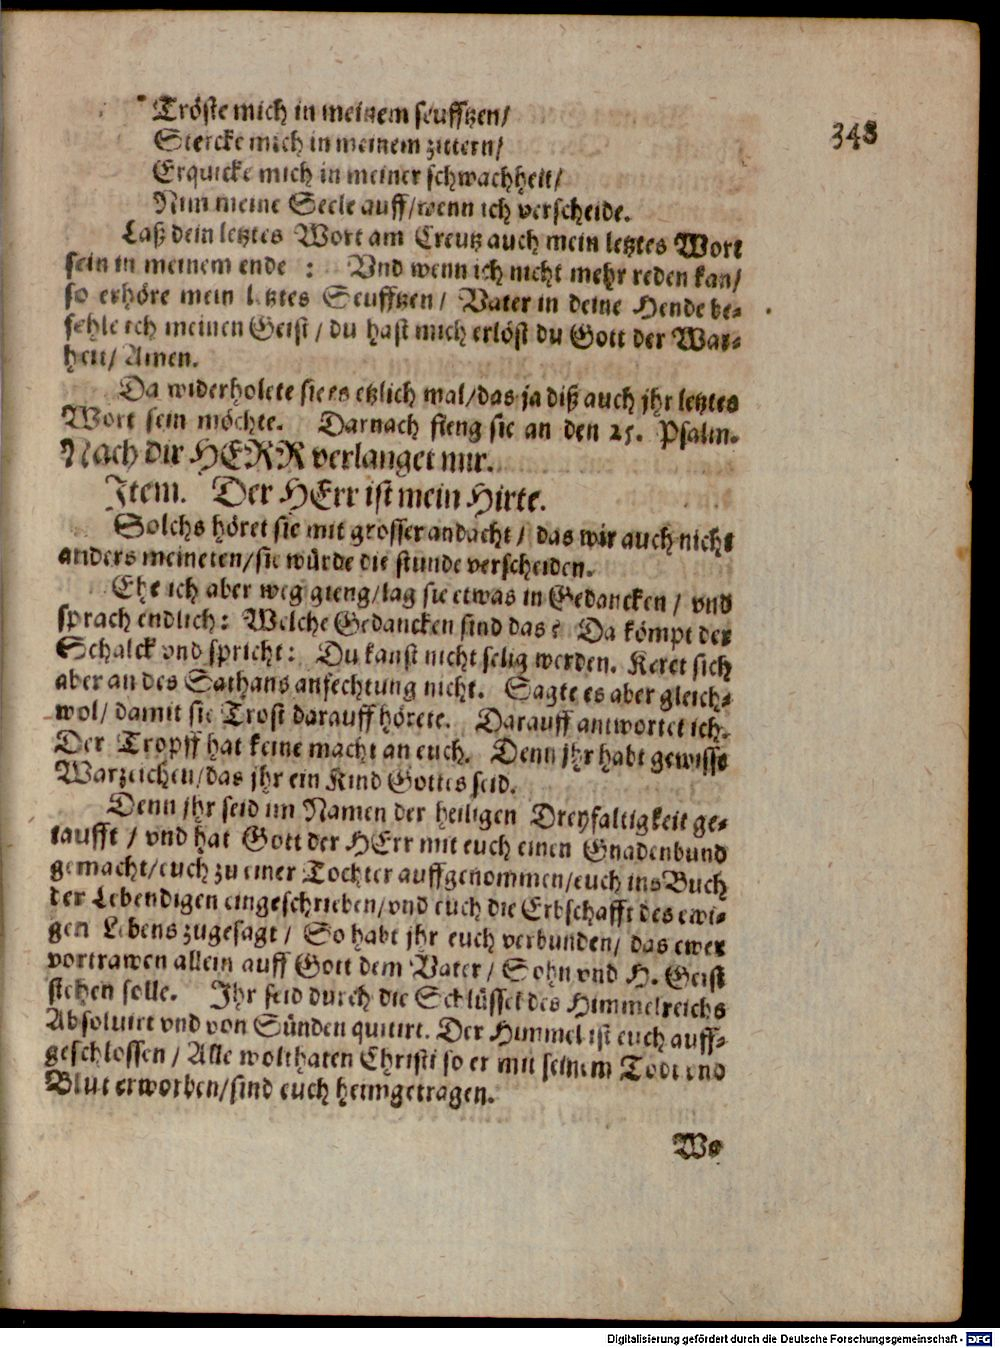 Tröste mich in meinem seufftzen/
348
Stercke mich in meinem zittern/
Erquicke mich in meiner schwachheit/
Nim meine Seele auff/wenn ich verscheide.
Laß dein letztes Wort am Creutz auch mein letztes Wort
sein in meinem ende : Vnd wenn ich nicht mehr reden kan/
so erhöre mein letztes Seufftzen/ Vater in deine Hende be-
fehle ich meinen Geist / du hast mich erlöst du Gott der War-
heit/ Amen.
Da widerholete sie es etzlich mal/das ja diß auch jhr letztes
Wort sein möchte. Darnach fieng sie an den 25. Psalm.
Nach dir HERR verlanget mir.
Item. Der HErr ist mein Hirte.
Solchs höret sie mit grosser andacht / das wir auch nicht
anders meineten/sie würde die stunde verscheiden.
Ehe ich aber weg gieng/lag sie etwas in Gedancken / vnd
sprach endlich: Welche Gedancken sind das? Da kömpt der
Schalck vnd spricht: Du kanst nicht selig werden. Keret sich
aber an des Sathans anfechtung nicht. Sagte es aber gleich-
wol/ damit sie Trost darauff hörete. Darauff antwortet ich.
Der Tropff hat keine macht an euch. Denn jhr habt gewisse
Warzeichen/das jhr ein Kind Gottes seid.
Denn jhr seid im Namen der heiligen Dreyfaltigkeit ge-
taufft / vnd hat Gott der HErr mit euch einen Gnadenbund
gemacht/euch zu einer Tochter auffgenommen/euch ins Buch
der Lebendigen eingeschrieben/vnd euch die Erbschafft des ewi-
gen Lebens zugesagt / So habt jhr euch verbunden/ das ewer
vortrawen allein auff Gott dem Vater / Sohn vnd H. Geist
stehen solle. Ihr seid durch die Schlüssel des Himmelreichs
Absoluirt vnd von Sünden quitirt. Der Himmel ist euch auff-
geschlossen / Alle wolthaten Christi so er mit seinem Tod vnd
Blut erworben/sind euch heimgetragen.
We
Digitalisierung gefördert durch die Deutsche Forschungsgemeinschaft - DFG